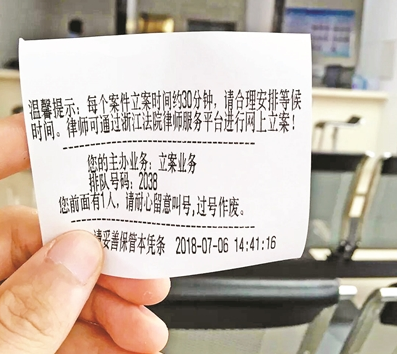 温馨提示：每个案件立案时间约30分钟，请合理安排等候
时间。律师可通过浙江法院律师服务平台进行网上立案！
您的主办业务：立案业务
排队号码：2038
您前面有1人，请耐心留意叫号,过号作废。
请妥善保管本凭条 2018-07-06 14:41:16